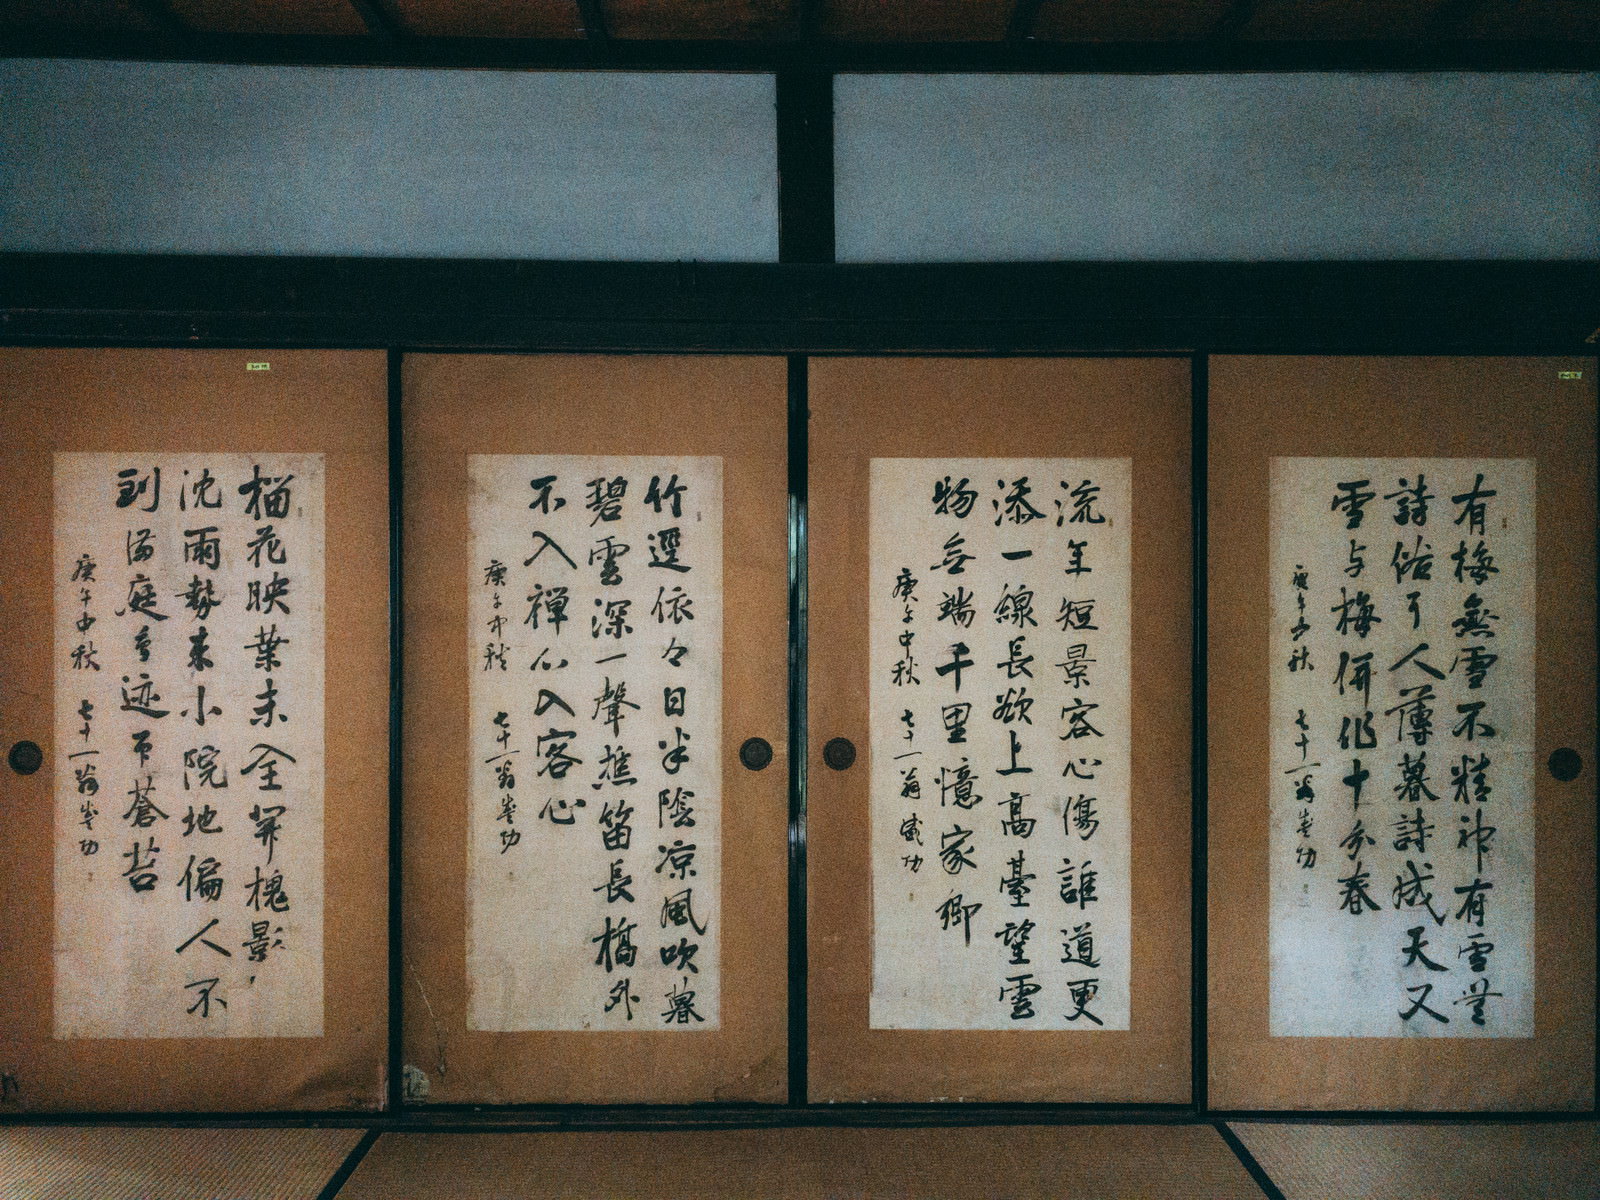 有梅無雪不精神有雪無
詩俗了人薄暮詩成天又
雪与梅併作十分春
庚午中秋 七十一翁
流年短景客心傷誰道更
添一線長欲上高臺望雲
物無端千里憶家鄉
庚午中秋 七十一翁
竹逕依々日半陰涼風吹暮
碧雲深一聲樵笛長橋外
不入禅心入客心
庚午中秋 七十一翁
榴花映葉未全開槐影
沈雨勢来小院地偏人不
到満庭鳥迹印蒼苔
庚午中秋 七十一翁